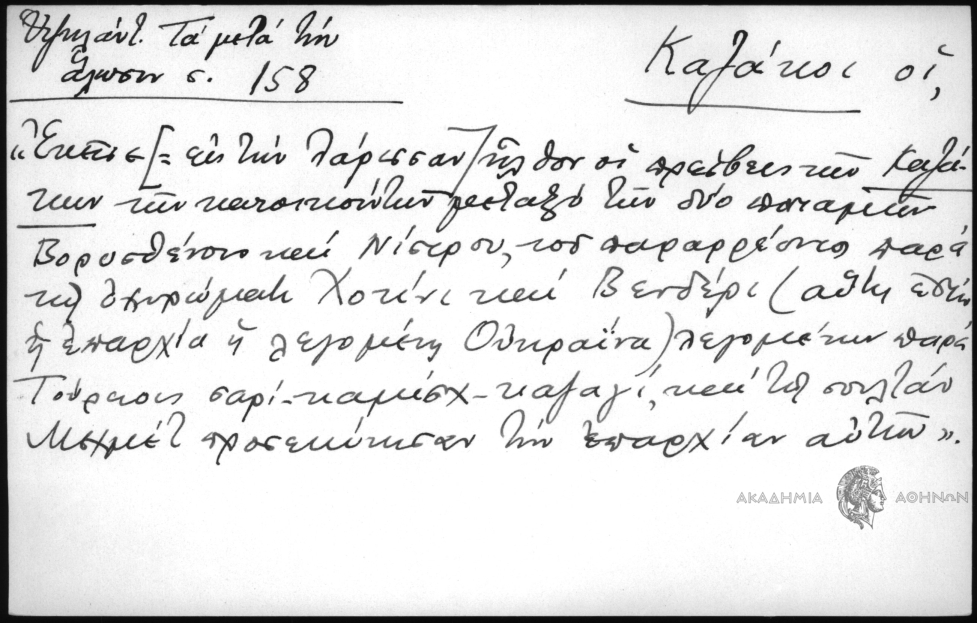 Ὑψηλάντ. Τά μετά τήν
ἅλωσιν σ. 158
Καζάκοι οἱ,
«Ἐκεῖσε [= εἰς τήν Λάρισσαν] ἦλθον οἱ πρέσβεις τῶν Καζά-
κων τῶν κατοικούντων μεταξύ τῶν δύο ποταμῶν
Βορυσθένους καί Νίστρου, τοῦ παραρρέοντος παρά
τῷ ὀχυρώματι Χοτίνι καί Βενδέρι (αὕτη ἐστίν
ἡ ἐπαρχία ἡ λεγομένη Οὐκραΐνα) λεγομένων παρά
Τούρκοις σαρί-καμίσχ-καζαγί, καί τῷ σουλτάν
Μεχμέτ προσεκύνησαν τήν ἐπαρχίαν αὐτῶν».
ΑΚΑΔΗΜΙΑ ΑΘΗΝΩΝ